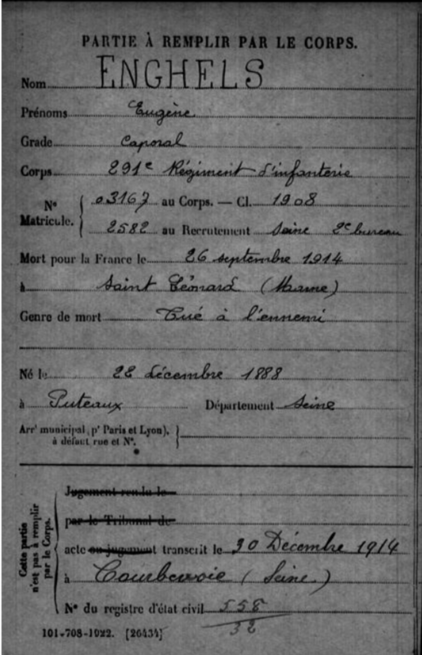 PARTIE À REMPLIR PAR LE CORPS.
Nom ENGHELS
Prénoms Eugène
Grade Caporal
Corps 291e Régiment d'infanterie
N° Matricule. 03167 au Corps. — Cl. 1908
2582 au Recrutement Seine 2e bureau
Mort pour la France le 26 septembre 1914
à Saint Léonard (Marne)
Genre de mort Tué à l'ennemi
Né le 22 décembre 1888
à Puteaux Département Seine
Arrt municipal (pr Paris et Lyon),
à défaut rue et N°.
Cette partie n'est pas à remplir par le Corps.
Jugement rendu le
par le Tribunal de
acte ou jugement transcrit le 30 Décembre 1914
à Courbevoie (Seine)
N° du registre d'état civil 558
32
101-708-1922. [26434]